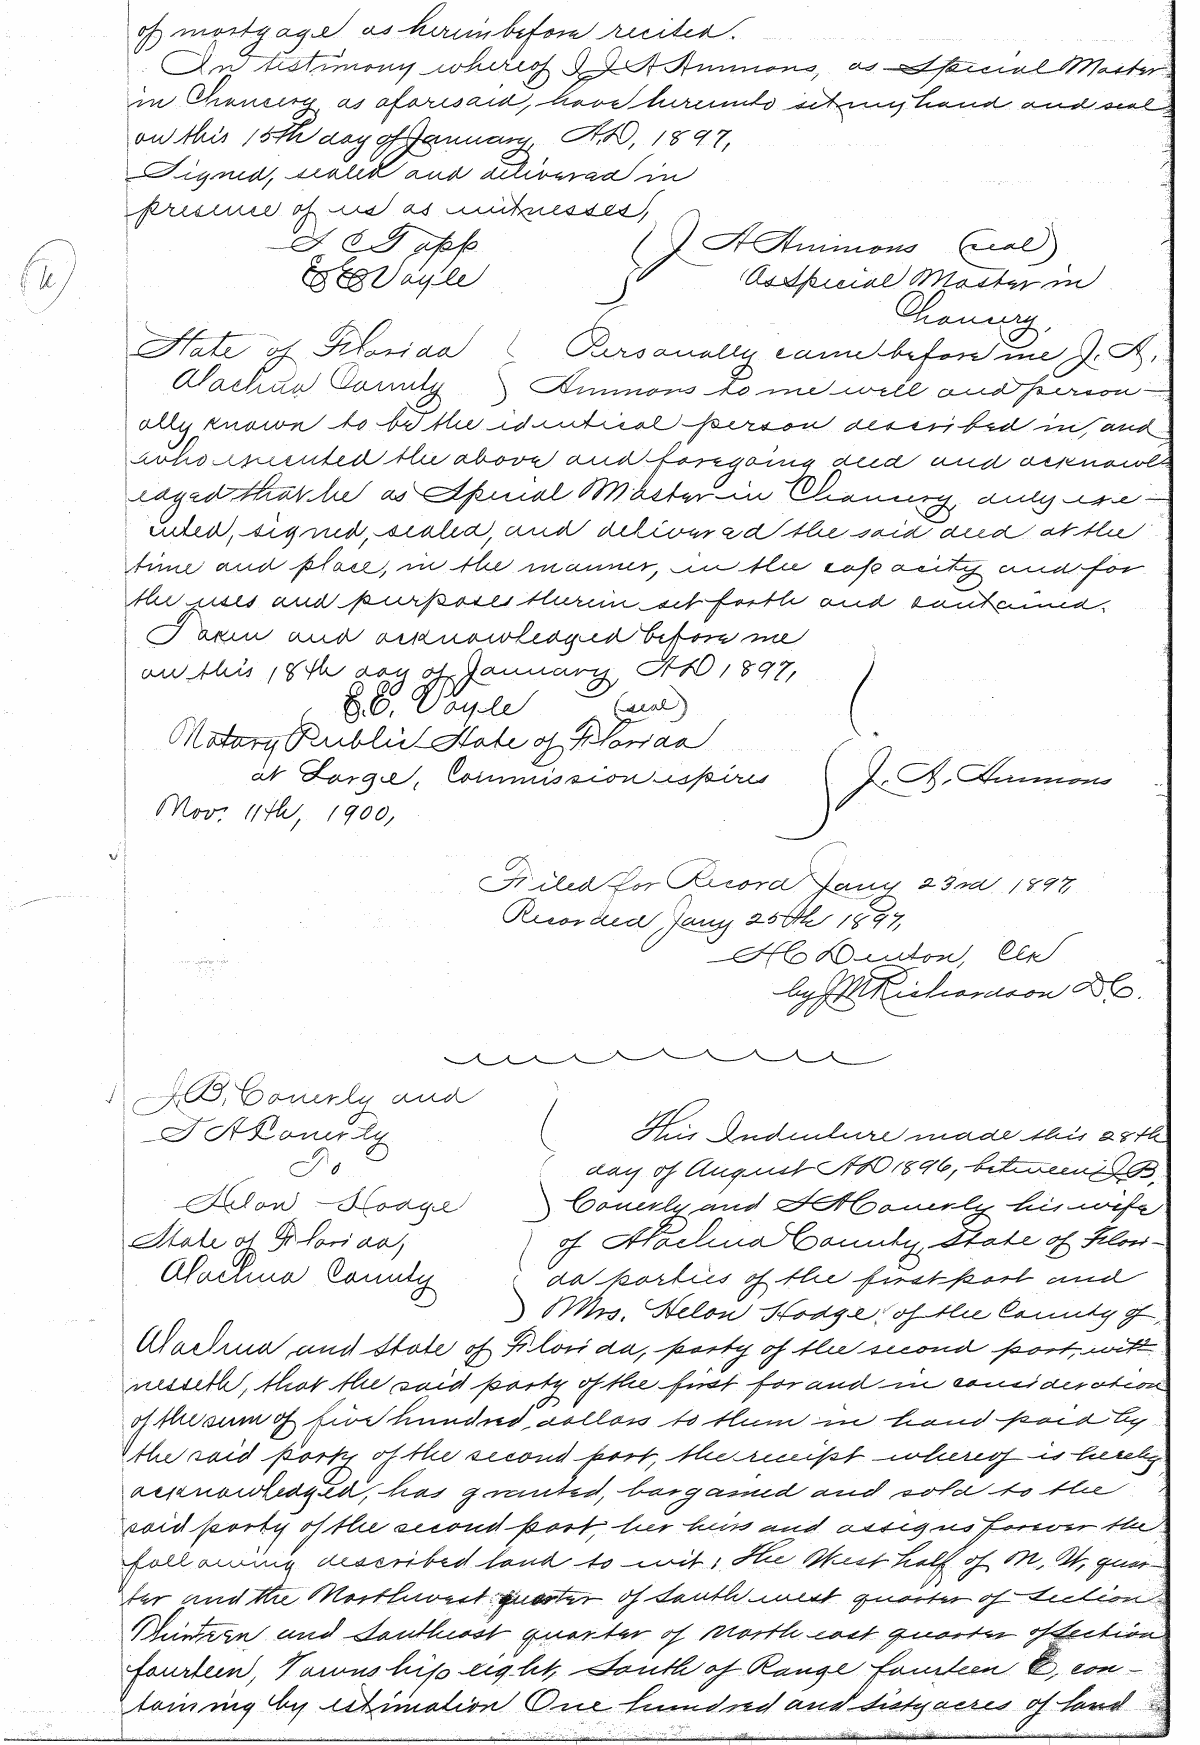 of mortgage as hereinbefore recited.
In testimony whereof I J A Ammons, as Special Master
in Chancery as aforesaid, have hereunto set my hand and seal
on this 15th day of January, A.D, 1897,
Signed, sealed and delivered in
presence of us as witnesses,
C Tapp
J A Ammons (seal)
E E Voyle
As Special Master in
Chancery,
State of Florida
Personally came before me J. A.
Alachua County
Ammons to me well and person-
ally known to be the identical person described in, and
who executed the above and foregoing deed and acknowl-
edged that he as Special Master in Chancery, duly exe-
cuted, signed, sealed, and delivered the said deed at the
time and place, in the manner, in the capacity and for
the uses and purposes therein set forth and contained.
Taken and acknowledged before me
on this 18th day of January, A D 1897,
E.E. Voyle (seal)
Notary Public State of Florida
at Large, Commission expires
J. A. Ammons
Nov. 11th, 1900,
Filed for Record Jany 23rd 1897,
Recorded Jany 25th 1897,
H C Denton, Clk
by J M Richardson D C.
J.B. Conerly and
This Indenture made this 28th
A Conerly
day of August A D 1896, between J B,
To
Helon Hodge
Conerly and A Conerly his wife
State of Florida,
of Alachua County, State of Flori-
Alachua County
da parties of the first part and
Mrs. Helon Hodge, of the County of
Alachua and State of Florida, party of the second part, wit-
nesseth, that the said party of the first for and in consideration
of the sum of five hundred dollars to them in hand paid by
the said party of the second part, the receipt whereof is hereby
acknowledged, has granted, bargained and sold to the
said party of the second part, her heirs and assigns forever the
following described land to wit: The West half of N. W, quar-
ter and the Northwest quarter of South west quarter of Section
Thirteen and Southeast quarter of North east quarter of Section
fourteen, Township eight, South of Range fourteen E, con-
taining by estimation One hundred and sixty acres of land